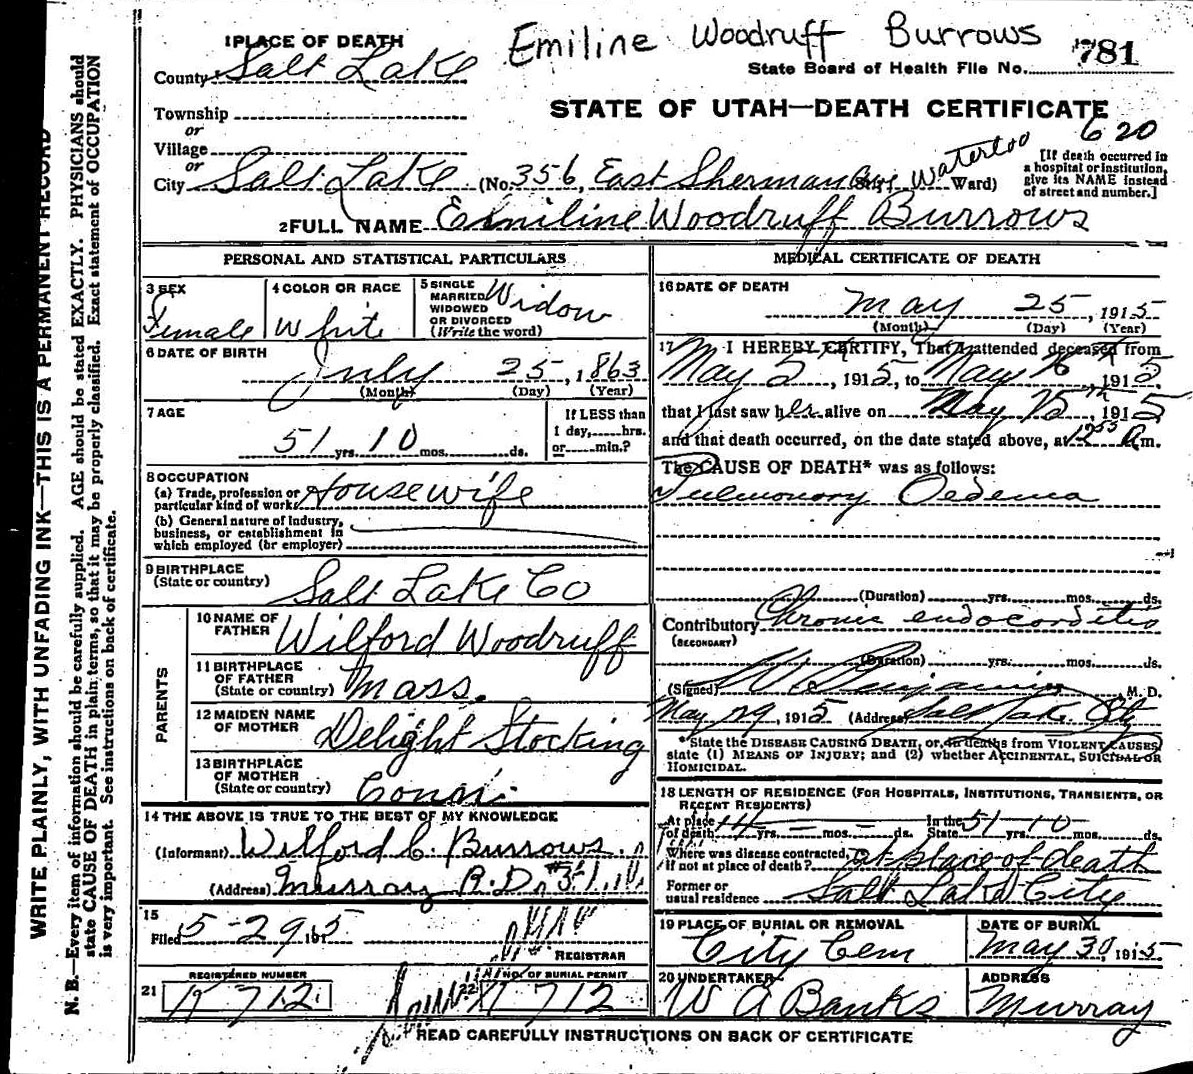 Emiline Woodruff Burrows
1 PLACE OF DEATH
County Salt Lake
State Board of Health File No. 781
Township
or
Village
or
City Salt Lake (No. 356, East Sherman Ave St.; Waterloo Ward)
STATE OF UTAH—DEATH CERTIFICATE
620
[If death occurred in
a hospital or institution,
give its NAME instead
of street and number.]
2 FULL NAME Emiline Woodruff Burrows
PERSONAL AND STATISTICAL PARTICULARS
3 SEX
Female
4 COLOR OR RACE
White
5 SINGLE
MARRIED
WIDOWED
OR DIVORCED
(Write the word)
Widow
6 DATE OF BIRTH
July 25, 1863
(Month) (Day) (Year)
7 AGE
51 yrs. 10 mos. ds.
If LESS than
1 day, hrs.
or min.?
8 OCCUPATION
(a) Trade, profession or
particular kind of work Housewife
(b) General nature of industry,
business, or establishment in
which employed (or employer)
9 BIRTHPLACE
(State or country) Salt Lake Co
PARENTS
10 NAME OF
FATHER Wilford Woodruff
11 BIRTHPLACE
OF FATHER
(State or country) Mass.
12 MAIDEN NAME
OF MOTHER Delight Stocking
13 BIRTHPLACE
OF MOTHER
(State or country)
14 THE ABOVE IS TRUE TO THE BEST OF MY KNOWLEDGE
(Informant) Wilford C. Burrows.
(Address) Murray R.D. #3
15
Filed 5-29 1915
REGISTRAR
REGISTERED NUMBER
21 K 712
22 NO. OF BURIAL PERMIT
K 712
MEDICAL CERTIFICATE OF DEATH
16 DATE OF DEATH
May 25, 1915
(Month) (Day) (Year)
17 I HEREBY CERTIFY, That I attended deceased from
May 5, 1915, to May 1915
that I last saw her alive on May 15th, 1915
and that death occurred, on the date stated above, at 12 55 A m.
The CAUSE OF DEATH* was as follows:
Pulmonary Oedema
(Duration) yrs. mos. ds.
Contributory Chronic endocarditis
(SECONDARY)
(Duration) yrs. mos. ds.
(Signed) W. Benjamin, M. D.
May 29, 1915 (Address) Salt Lake City
*State the DISEASE CAUSING DEATH, or, in deaths from VIOLENT CAUSES,
state (1) MEANS OF INJURY; and (2) whether ACCIDENTAL, SUICIDAL OR
HOMICIDAL.
18 LENGTH OF RESIDENCE (FOR HOSPITALS, INSTITUTIONS, TRANSIENTS, OR
RECENT RESIDENTS)
At place
of death 14 yrs. — mos. — ds.
In the
State 51 yrs. 10 mos. ds.
Where was disease contracted,
if not at place of death? at place of death
Former or
usual residence Salt Lake City
19 PLACE OF BURIAL OR REMOVAL
City Cem
DATE OF BURIAL
May 30, 1915
20 UNDERTAKER
W A Banks
ADDRESS
Murray
READ CAREFULLY INSTRUCTIONS ON BACK OF CERTIFICATE
WRITE PLAINLY, WITH UNFADING INK—THIS IS A PERMANENT RECORD
N. B.—Every item of information should be carefully supplied. AGE should be stated EXACTLY. PHYSICIANS should
state CAUSE OF DEATH in plain terms, so that it may be properly classified. Exact statement of OCCUPATION
is very important. See instructions on back of certificate.